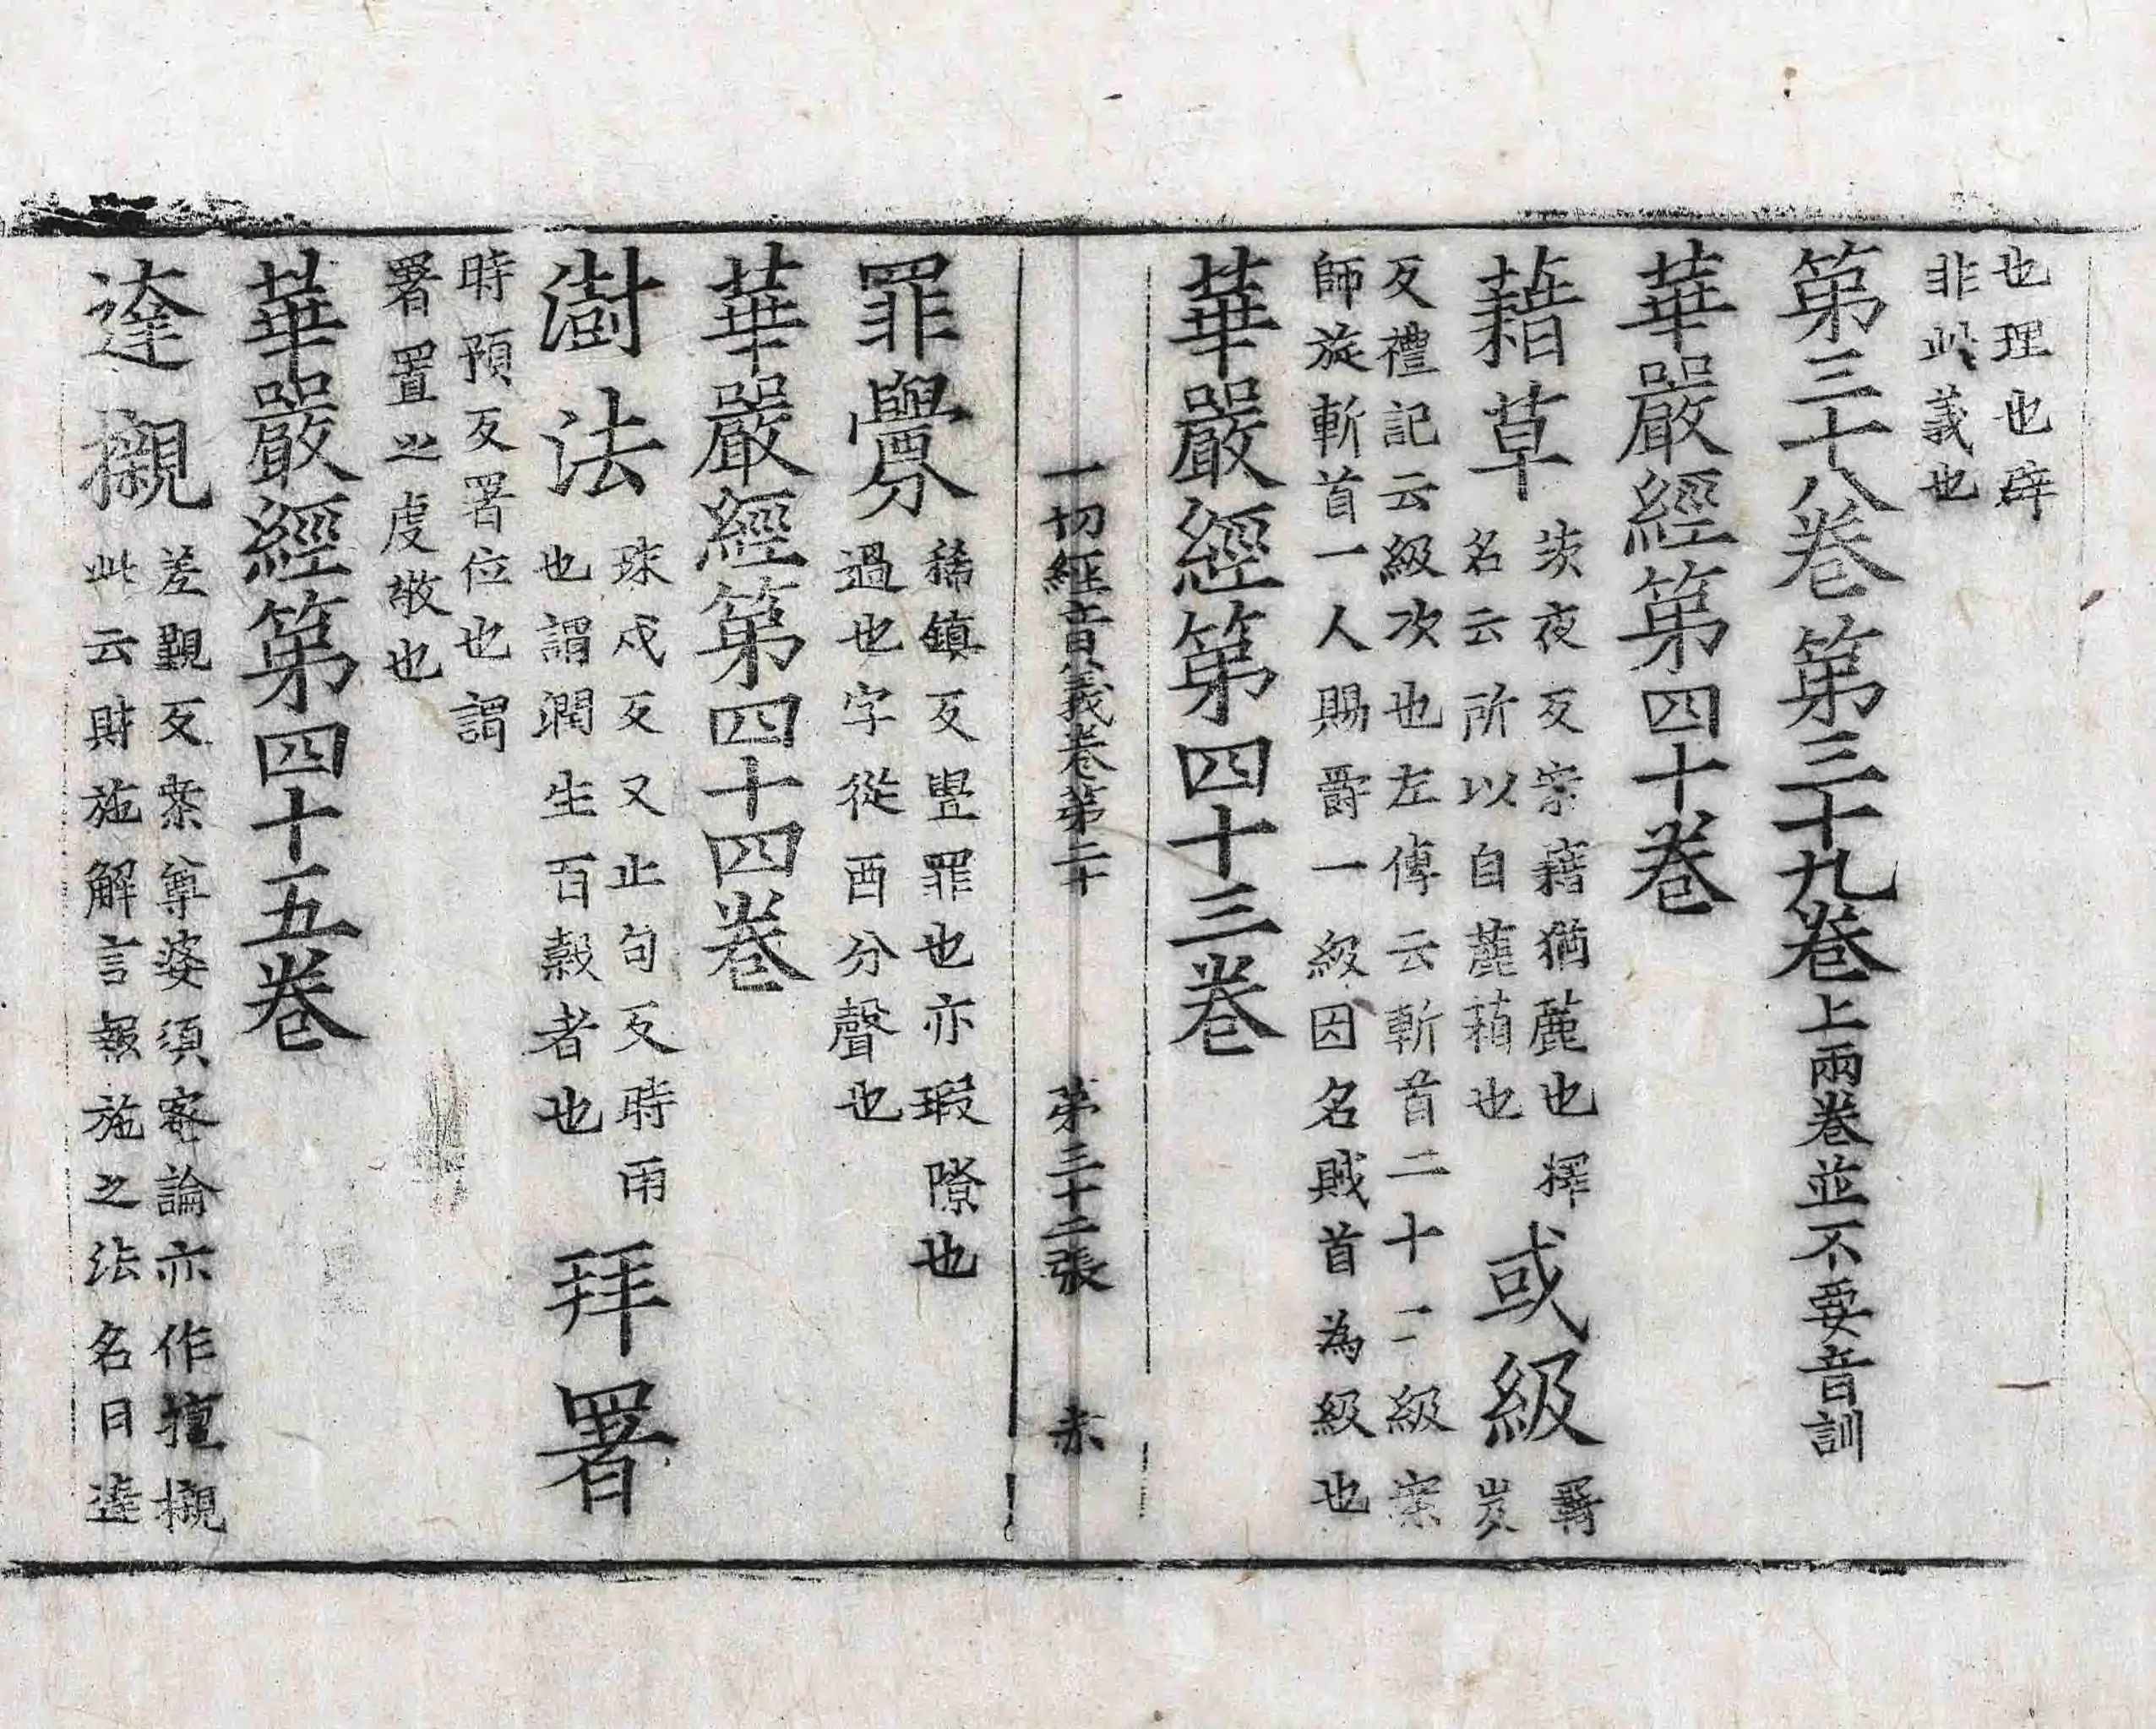 也理也辟
非此義也
第三十八卷第三十九卷上兩卷並不要音訓
華嚴經第四十卷
藉草
茨夜反案藉猶薦也擇
名云所以自薦藉也
或級
碁岌
反禮記云級次也左傳云斬首二十二級案
師旋斬首一人賜爵一級因名賊首為級也
華嚴經第四十三卷
一切經音義卷第二十 第三十二張 赤
罪釁
稀鎮反舋罪也亦瑕隙也
過也字從酉分聲也
華嚴經第四十四卷
澍法
珠戍反又止句反時雨
也謂潤生百穀者也
拜署
時預反署位也謂
署置之虔敬也
華嚴經第四十五卷
達櫬
差覲反案尊婆須蜜論亦作擅櫬
此云財施解言報施之法名曰達